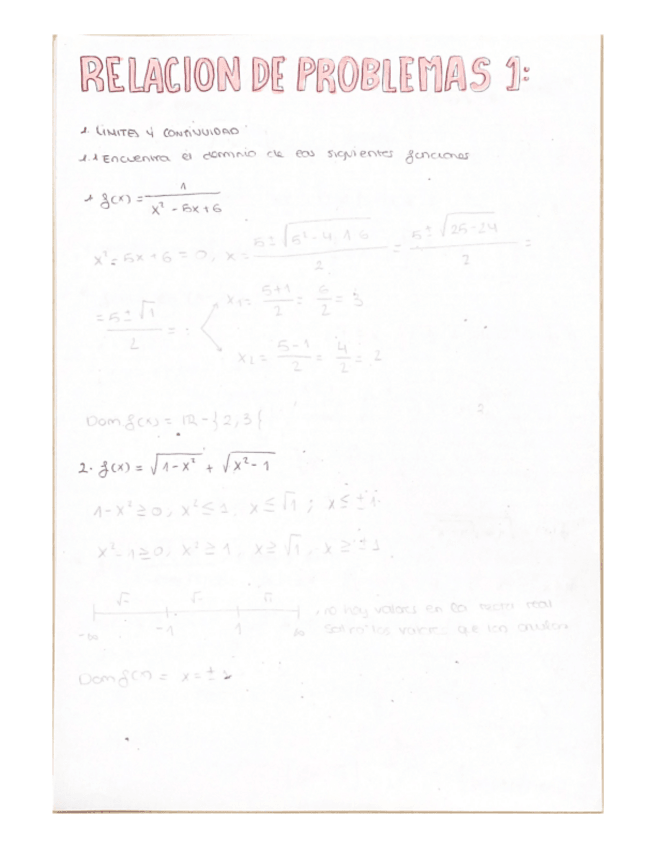 RELACION DE PROBLEMAS 1:
1. LIMITES Y CONTINUIDAD
1.1 Encuentra el dominio de las siguientes funciones
1 f(x) = 1 / (x² - 5x + 6)
x² - 5x + 6 = 0, x = (5 ± √(5² - 4·1·6)) / 2 = (5 ± √(25-24)) / 2 =
= (5 ± √1) / 2 =
x₁ = (5+1)/2 = 6/2 = 3
x₂ = (5-1)/2 = 4/2 = 2
Dom f(x) = R - {2, 3}
2. f(x) = √(1-x²) + √(x²-1)
1-x² ≥ 0, x² ≤ 1, x ≤ √1; x ≤ ±1
x²-1 ≥ 0; x² ≥ 1, x ≥ √1, x ≥ ±1
-∞ -1 1 ∞
no hay valores en la recta real
salvo los valores que los anulan
Dom f(x) = x = ± 1